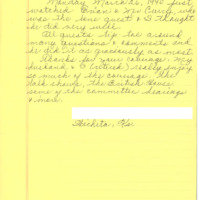 Monday, March 26, 1990 just
watched Brian & Mrs Curley, who
was the lone guest & I thought
he did very well.
all guests try to
many questions & comments and
he did it as graciously as most.
Thanks for your coverage. My
husband & I (critics!) really enjoy
so much of the coverage. The
talk shows, The British House
some of the committee hearings
& more.
Wichita, Ks.